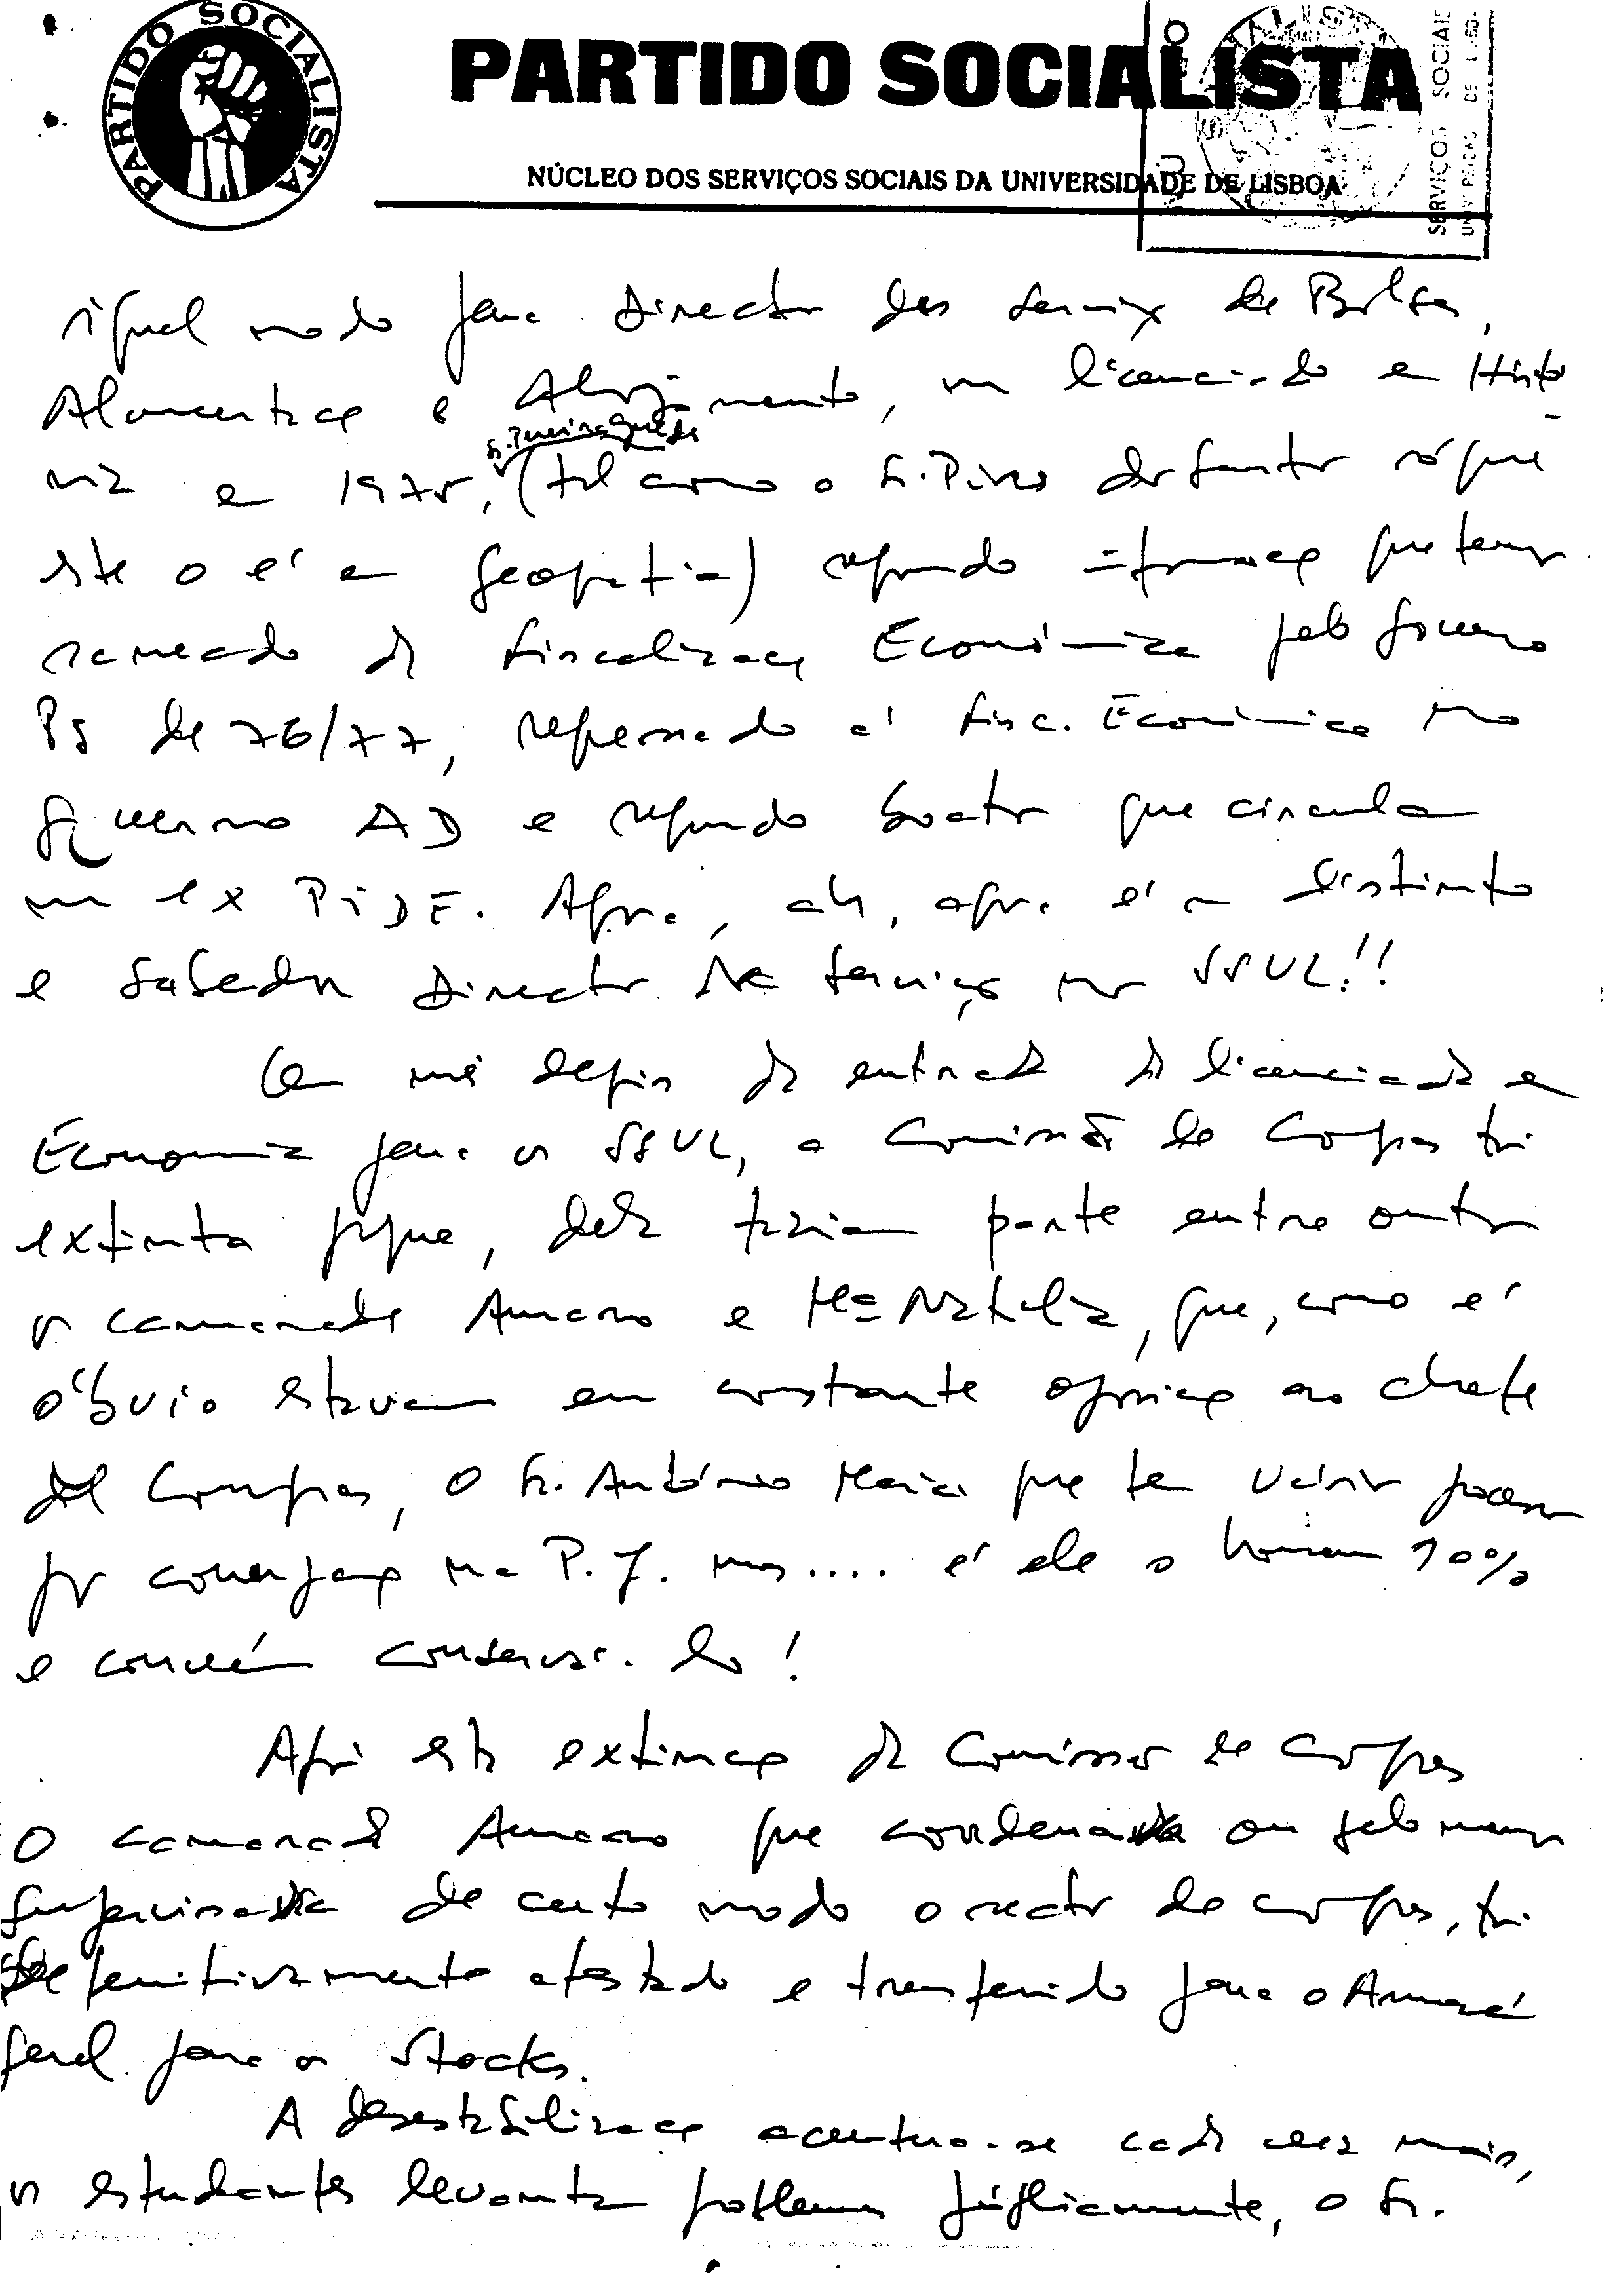 PARTIDO SOCIALISTA
PARTIDO SOCIALISTA
NÚCLEO DOS SERVIÇOS SOCIAIS DA UNIVERSIDADE DE LISBOA
SERVIÇOS SOCIAIS
igual modo para Director dos Serviços de Bolsas,
Alimentação e Alojamento, um licenciado em Histó
ria em 1975, (tal como o Sr. Pires dos Santos só que
Sr. Pereira Guedes
este o é em Geografia) segundo informação que temos
saneado da Fiscalização Económica pelo Governo
PS de 76/77, regressado à Fisc. Económica no
governo AD e segundo boatos que circulam
um ex PIDE. Agora, ah, agora é um distinto
e sabedor Director de Serviços nos SSUL!!
Um mês depois da entrada da licenciada em
Economia para os SSUL, a Comissão de Compras foi
extinta porque, dela faziam parte entre outros
os camaradas Amaro e Mª Natália, que, como é
óbvio estavam em constante oposição ao chefe
de Compras, o Sr. António Maia que tem vários processos
por corrupção na P.J. mas.... é ele o homem 10%
e convém conservá-lo!
Após esta extinção da Comissão de Compras
o camarada Amaro que coordenava ou pelo menos
supervisava de certo modo o sector de compras, foi
definitivamente afastado e transferido para o Armazém
geral para os Stocks.
A desestabilização acentua-se cada vez mais,
os estudantes levantam problemas públicamente, o Sr.